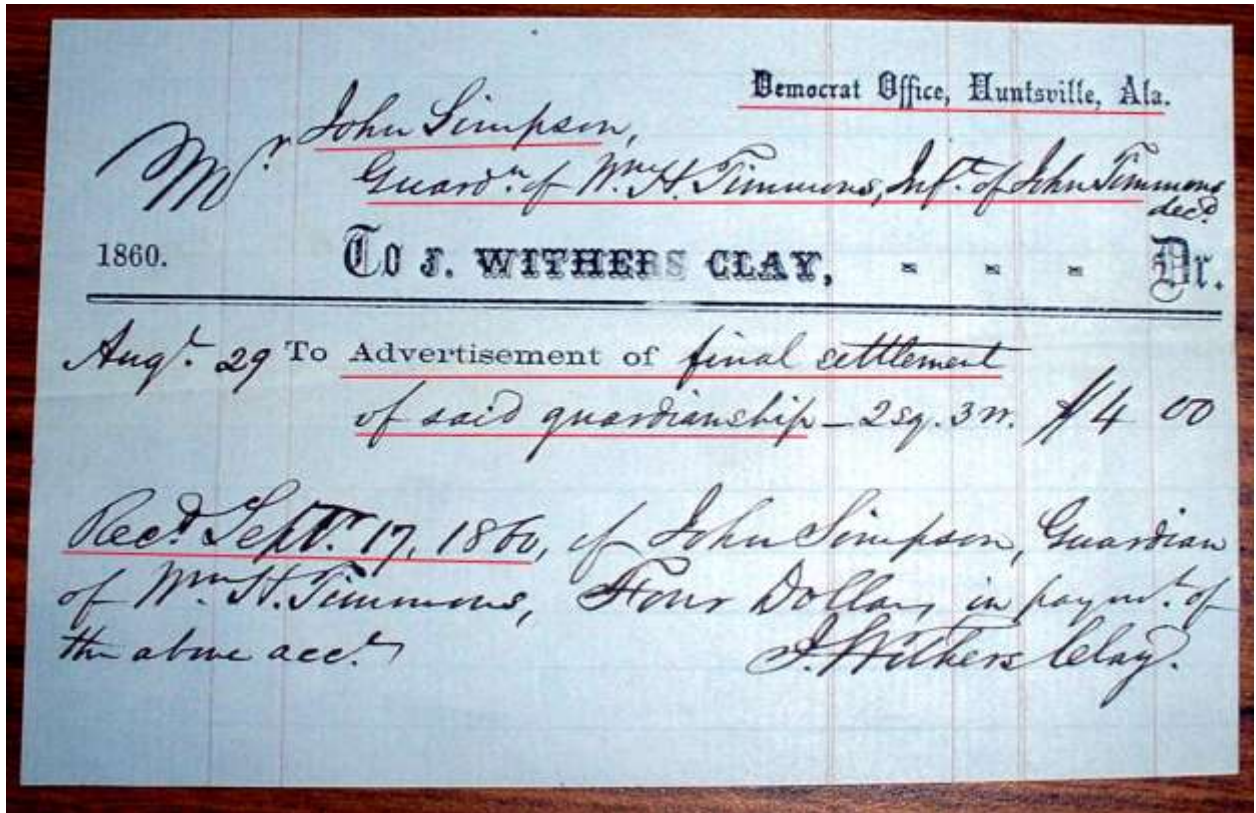 Democrat Office, Huntsville, Ala.
Mr John Simpson,
Guardn. of Wm. H. Timmons, Inft. of John Timmons
decd.
1860. To J. WITHERS CLAY, - - - Dr.
Augt. 29 To Advertisement of final settlement
of said guardianship – 2 sq. 3 w. $4 00
Recd. Septr. 17, 1860, of John Simpson, Guardian
of Wm. H. Timmons, Four Dollars, in paymt. of
the above acct.
J. Withers Clay.